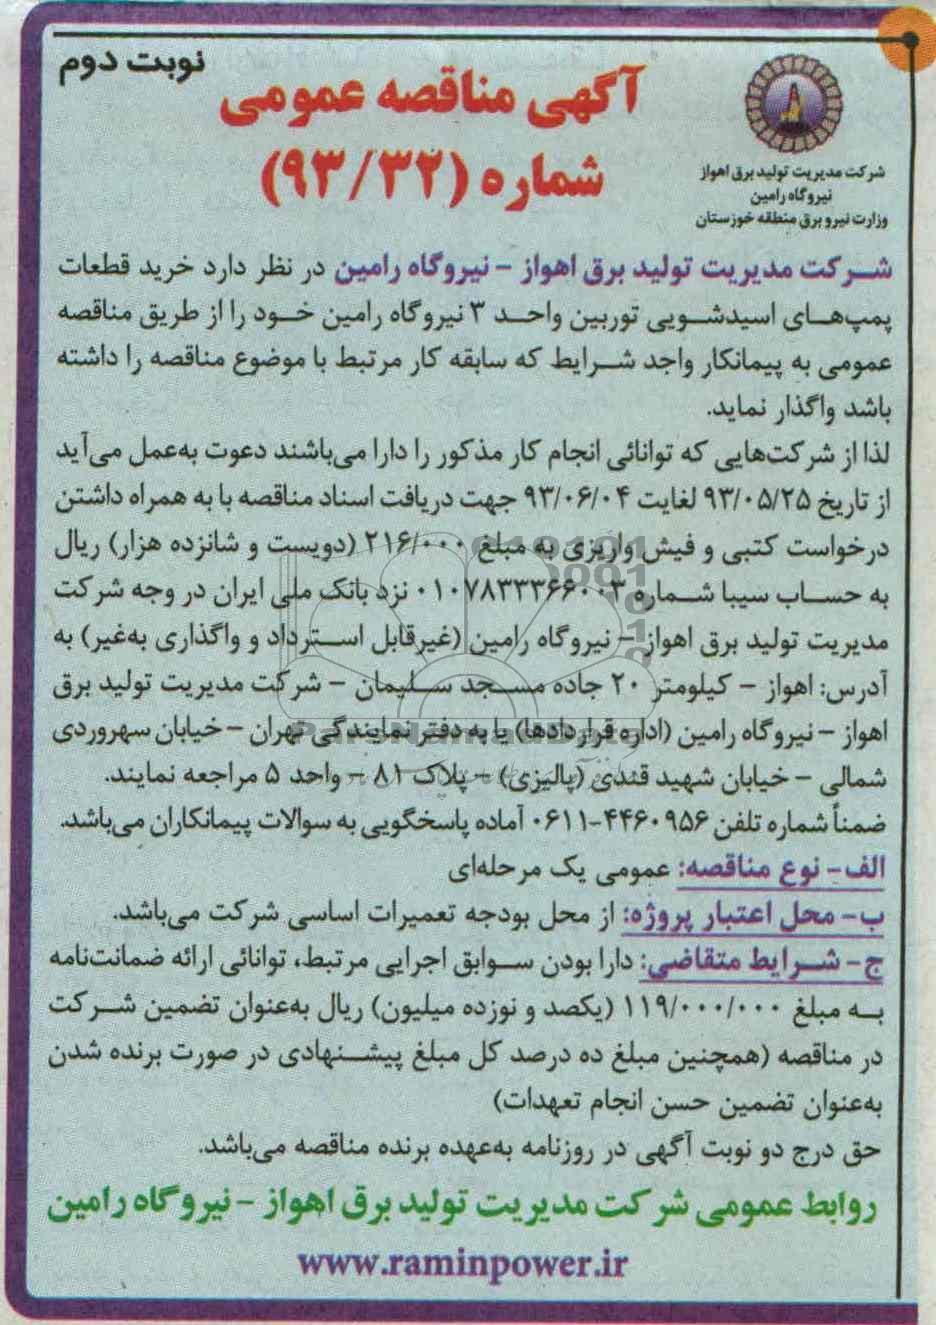 نوبت دوم
آگهی مناقصه عمومی
شماره (۹۳/۳۲)
شرکت مدیریت تولید برق اهواز
نیروگاه رامین
وزارت نیرو برق منطقه خوزستان
شرکت مدیریت تولید برق اهواز - نیروگاه رامین در نظر دارد خرید قطعات
پمپ‌های اسیدشویی توربین واحد ۳ نیروگاه رامین خود را از طریق مناقصه
عمومی به پیمانکار واجد شرایط که سابقه کار مرتبط با موضوع مناقصه را داشته
باشد واگذار نماید.
لذا از شرکت‌هایی که توانائی انجام کار مذکور را دارا می‌باشند دعوت به‌عمل می‌آید
از تاریخ ۹۳/۰۵/۲۵ لغایت ۹۳/۰۶/۰۴ جهت دریافت اسناد مناقصه با به همراه داشتن
درخواست کتبی و فیش واریزی به مبلغ ۲۱۶/۰۰۰ (دویست و شانزده هزار) ریال
به حساب سیبا شماره ۰۱۰۷۸۳۳۳۶۶۰۰۳ نزد بانک ملی ایران در وجه شرکت
مدیریت تولید برق اهواز - نیروگاه رامین (غیرقابل استرداد و واگذاری به‌غیر) به
آدرس: اهواز - کیلومتر ۲۰ جاده مسجد سلیمان - شرکت مدیریت تولید برق
اهواز - نیروگاه رامین (اداره قراردادها) یا به دفتر نمایندگی تهران - خیابان سهروردی
شمالی - خیابان شهید قندی (پالیزی) - پلاک ۸۱ - واحد ۵ مراجعه نمایند.
ضمناً شماره تلفن ۴۴۶۰۹۵۶-۰۶۱۱ آماده پاسخگویی به سوالات پیمانکاران می‌باشد.
الف- نوع مناقصه: عمومی یک مرحله‌ای
ب- محل اعتبار پروژه: از محل بودجه تعمیرات اساسی شرکت می‌باشد.
ج- شرایط متقاضی: دارا بودن سوابق اجرایی مرتبط، توانائی ارائه ضمانت‌نامه
به مبلغ ۱۱۹/۰۰۰/۰۰۰ (یکصد و نوزده میلیون) ریال به‌عنوان تضمین شرکت
در مناقصه (همچنین مبلغ ده درصد کل مبلغ پیشنهادی در صورت برنده شدن
به‌عنوان تضمین حسن انجام تعهدات)
حق درج دو نوبت آگهی در روزنامه به‌عهده برنده مناقصه می‌باشد.
روابط عمومی شرکت مدیریت تولید برق اهواز - نیروگاه رامین
www.raminpower.ir